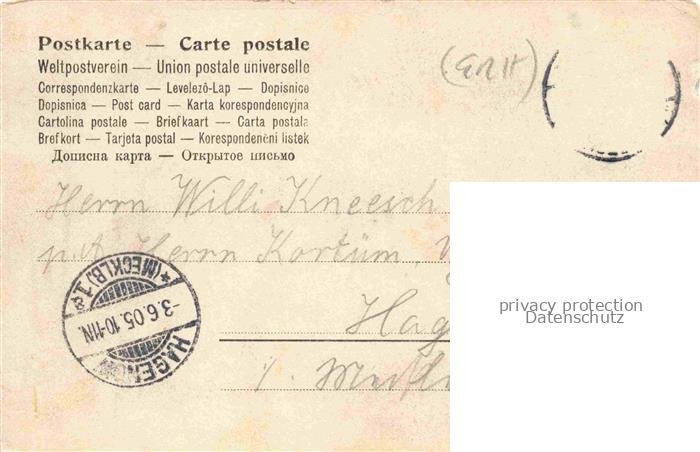 Postkarte — Carte postale
Weltpostverein — Union postale universelle
Correspondenzkarte — Levelező-Lap — Dopisnice
Dopisnica — Post card — Karta korespondencyjna
Cartolina postale — Briefkaart — Carta postala
Brefkort — Tarjeta postal — Korespondenční lístek
Дописна карта — Открытое письмо
Herrn Willi Kneesch
p. A. Herrn Kortüm,
Hag
i. Meckl
HAGENOW
-3.6.05.10-11N.
*(MECKLB.)1a
privacy protection
Datenschutz